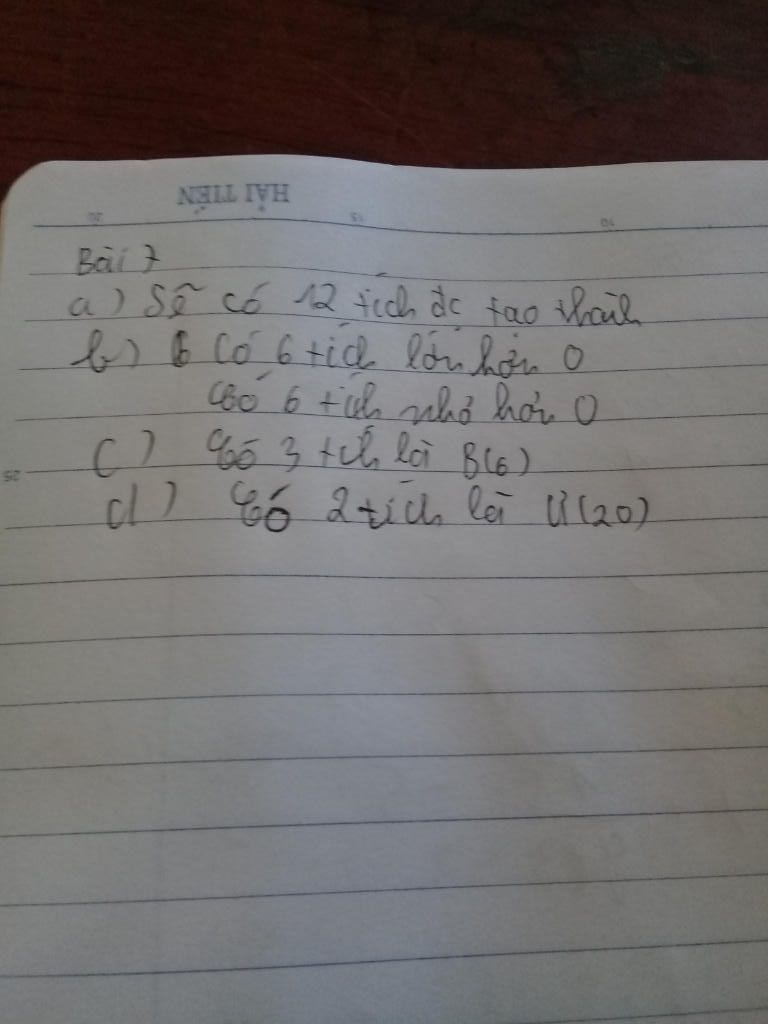 HẢI TIẾN
20 15 10
Bài 7
a) Sẽ có 12 tích đc tạo thành
b) Có 6 tích lớn hơn 0
Có 6 tích nhỏ hơn 0
c) Có 3 tích là B(6)
25
d) Có 2 tích là Ư(20)